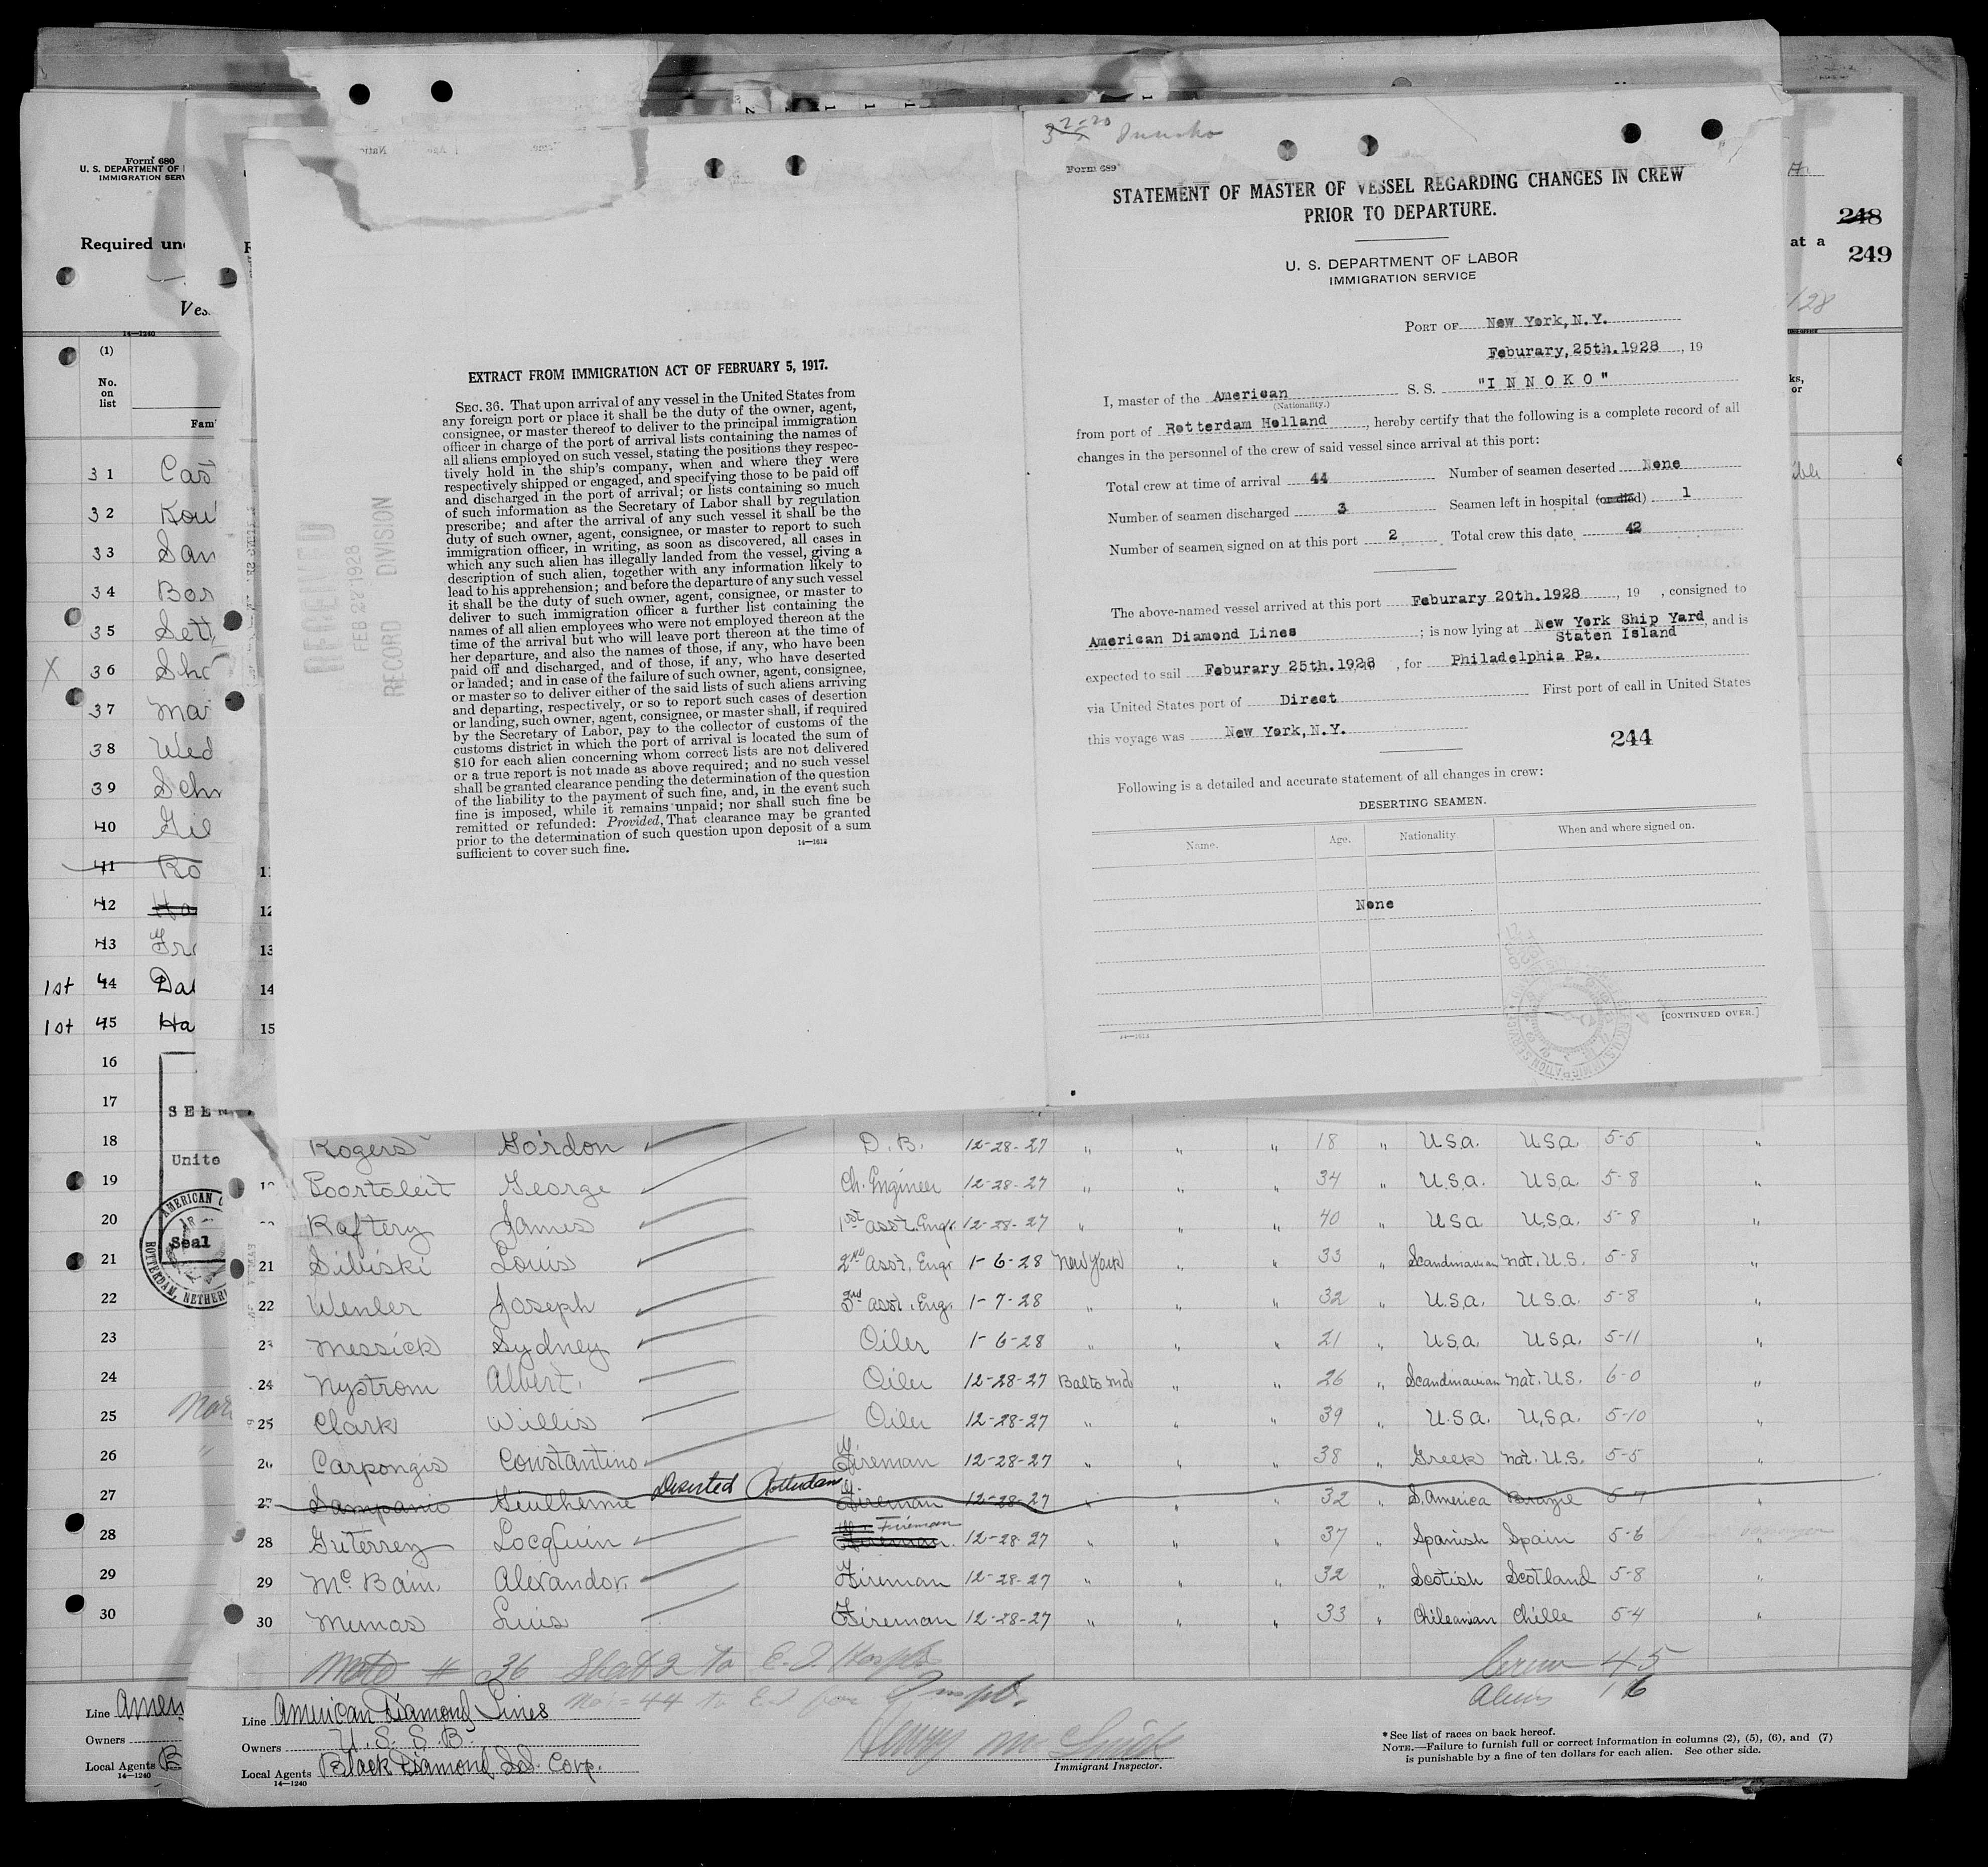 Form 680
U. S. DEPARTMENT OF
IMMIGRATION SERV
Required un
Ves
14—1240
(1)
No.
on
list
Fam
31 Cas
32 Kou
33 San
34 Bos
35 Sett
X 36 Sho
37 Mai
38 Wed
39 Schr
40 Gil
41 Ro
42 Ha
43 Fre
1st 44 Dal
1st 45 Ha
16
17
18
19
20
21
22
23
24
25
26
27
28
29
30
SEEN
Unite
Seal
AMERICAN C
ROTTERDAM, NETHER
Line Amer
Owners
Local Agents B
14—1240
248
249
at a
/28
ks,
or
EXTRACT FROM IMMIGRATION ACT OF FEBRUARY 5, 1917.
SEC. 36. That upon arrival of any vessel in the United States from
any foreign port or place it shall be the duty of the owner, agent,
consignee, or master thereof to deliver to the principal immigration
officer in charge of the port of arrival lists containing the names of
all aliens employed on such vessel, stating the positions they respec-
tively hold in the ship's company, when and where they were
respectively shipped or engaged, and specifying those to be paid off
and discharged in the port of arrival; or lists containing so much
of such information as the Secretary of Labor shall by regulation
prescribe; and after the arrival of any such vessel it shall be the
duty of such owner, agent, consignee, or master to report to such
immigration officer, in writing, as soon as discovered, all cases in
which any such alien has illegally landed from the vessel, giving a
description of such alien, together with any information likely to
lead to his apprehension; and before the departure of any such vessel
it shall be the duty of such owner, agent, consignee, or master to
deliver to such immigration officer a further list containing the
names of all alien employees who were not employed thereon at the
time of the arrival but who will leave port thereon at the time of
her departure, and also the names of those, if any, who have been
paid off and discharged, and of those, if any, who have deserted
or landed; and in case of the failure of such owner, agent, consignee,
or master so to deliver either of the said lists of such aliens arriving
and departing, respectively, or so to report such cases of desertion
or landing, such owner, agent, consignee, or master shall, if required
by the Secretary of Labor, pay to the collector of customs of the
customs district in which the port of arrival is located the sum of
$10 for each alien concerning whom correct lists are not delivered
or a true report is not made as above required; and no such vessel
shall be granted clearance pending the determination of the question
of the liability to the payment of such fine, and, in the event such
fine is imposed, while it remains unpaid; nor shall such fine be
remitted or refunded: Provided, That clearance may be granted
prior to the determination of such question upon deposit of a sum
sufficient to cover such fine.
14—1613
RECEIVED
FEB 27 1928
RECORD DIVISION
Innoko
Form 689
STATEMENT OF MASTER OF VESSEL REGARDING CHANGES IN CREW
PRIOR TO DEPARTURE.
U. S. DEPARTMENT OF LABOR
IMMIGRATION SERVICE
PORT OF New York, N.Y.
Feburary, 25th. 1928, 19
I, master of the American S. S. "I N N O K O"
(Nationality.)
from port of Rotterdam Holland, hereby certify that the following is a complete record of all
changes in the personnel of the crew of said vessel since arrival at this port:
Total crew at time of arrival 44 Number of seamen deserted None
Number of seamen discharged 3 Seamen left in hospital (or died) 1
Number of seamen signed on at this port 2 Total crew this date 42
The above-named vessel arrived at this port Feburary 20th.1928, 19 , consigned to
American Diamond Lines; is now lying at New York Ship Yard Staten Island, and is
expected to sail Feburary 25th.1928, for Philadelphia Pa.
via United States port of Direct First port of call in United States
this voyage was New York, N.Y.
244
Following is a detailed and accurate statement of all changes in crew:
DESERTING SEAMEN.
Name. Age. Nationality When and where signed on.
None
[CONTINUED OVER.]
14—1613
11
12
13
14
15
Rogers Gordon D. B. 12-28-27 " " " 18 " U.S.A. U.S.A. 5-5 "
Poortoleit George Ch. Engineer 12-28-27 " " " 34 " U.S.A. U.S.A. 5-8 "
Raftery James 1st asst. Engr. 12-28-27 " " " 40 " U.S.A. U.S.A. 5-8 "
21 Silviski Louis 2nd Asst. Engr 1-6-28 New York " " 33 " Scandinavian Nat. U.S. 5-8 "
22 Wenler Joseph 3rd asst. Eng. 1-7-28 " " " 32 " U.S.A. U.S.A. 5-8 "
23 Messick Sydney Oiler 1-6-28 " " " 21 " U.S.A. U.S.A. 5-11 "
24 Nystrom Albert Oiler 12-28-27 Balto Md. " " 26 " Scandinavian Nat. U.S. 6-0 "
25 Clark Willis Oiler 12-28-27 " " " 39 " U.S.A. U.S.A. 5-10 "
26 Carpongis Constantino Fireman 12-28-27 " " " 38 " Greek Nat. U.S. 5-5 "
Deserted Rotterdam
27 Sampanio Giulherme Fireman 12-28-27 " " " 32 " S. America Brazil 5-7
28 Guterrez Locquin Fireman 12-28-27 " " " 37 " Spanish Spain 5-6
29 Mc. Bain Alexandor. Fireman 12-28-27 " " " 32 " Scotish Scotland 5-8 "
30 Munos Luis Fireman 12-28-27 " " " 33 " Chileanian Chille 5-4 "
Note # 36 Sheet 2 to E. I. Hospt
No. 44 to E.I. for Inspt.
Crew 45
Aliens 16
Line American Diamond Lines
Owners U. S. S. B.
Local Agents Black Diamond S.S. Corp.
14—1240
Immigrant Inspector.
* See list of races on back hereof.
NOTE.—Failure to furnish full or correct information in columns (2), (5), (6), and (7)
is punishable by a fine of ten dollars for each alien. See other side.